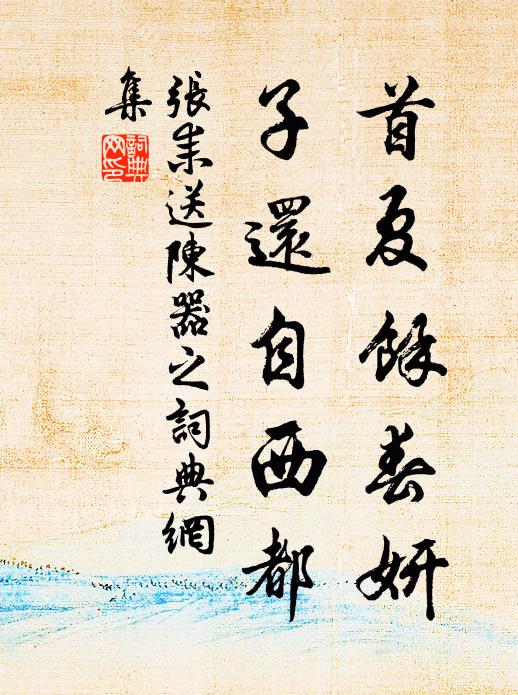 首夏餘春妍
子還自西都
張耒送陳器之詞典網
集
詞典網印